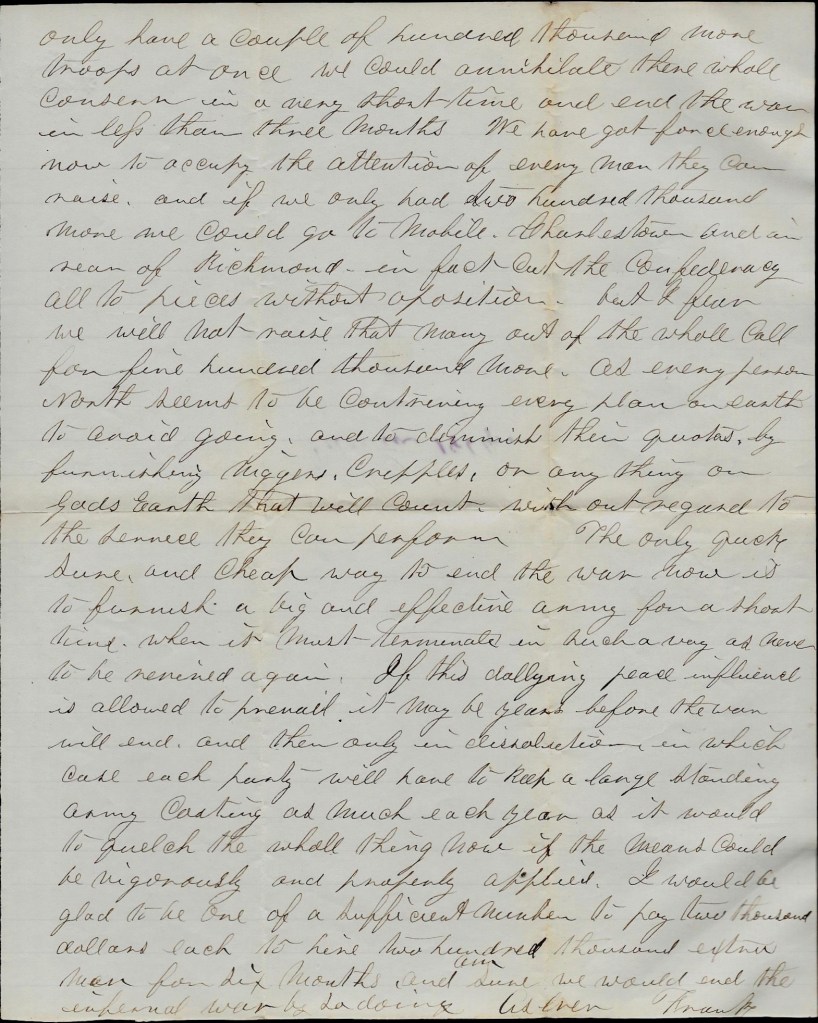 only have a couple of hundred thousand more
troops at once we could annihilate there whole
consern in a very short time and end the war
in less than three months We have got force enough
now to occupy the attention of every man they can
raise. and if we only had two hundred thousand
more we could go to Mobile. Charlestown and in
rear of Richmond. in fact cut the Confederacy
all to pieces without oposition. but I fear
we will not raise that many out of the whole call
for five hundred thousand more. as every person
North seems to be contriving every plan on earth
to avoid going. and to diminish their quotas, by
furnishing Niggers, Cripples, or any thing on
Gods Earth that will count. with out regard to
the service they can perform The only quick
sure, and cheap way to end the war now is
to furnish a big and effective army for a short
time. when it must terminate in such a way as never
to be revived again. If this dallying peace influence
is allowed to prevail it may be years before the war
will end. and then only in dissolution, in which
case each party will have to keep a large standing
army costing as much each year as it would
to quelch the whole thing now if the means could
be vigorously and properly applied. I would be
glad to be one of a sufficient number to pay two thousand
dollars each to hire two hundred thousand extra
men for six months and am sure we would end the
infernal war by so doing As ever Frank